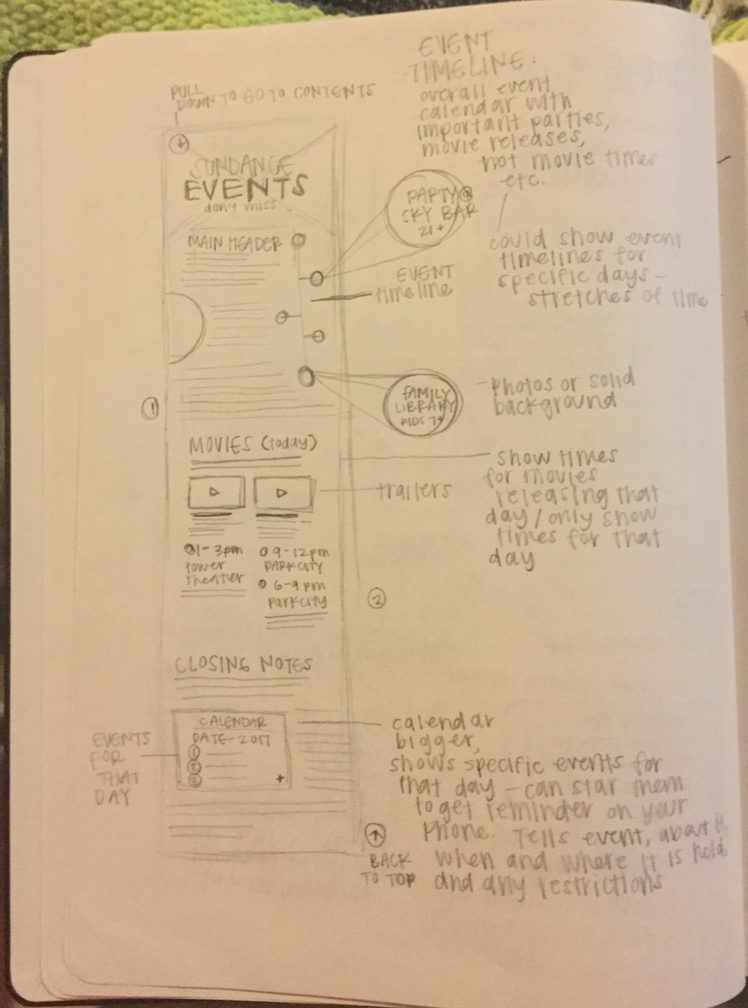 PULL
DOWN TO GO TO CONTENTS
SUNDANCE
EVENTS
don't miss
MAIN HEADER
EVENT
TIMELINE:
overall event
calendar with
important parties,
movie releases,
not movie times
etc.
could show event
timelines for
specific days -
stretches of time
PARTY @
SKY BAR
21+
EVENT
timeline
FAMILY
LIBRARY
KIDS 7+
- Photos or solid
background
1
MOVIES (today)
trailers
show times
for movies
releasing that
day / only show
times for that
day
1-3pm
tower
theatier
9-12pm
PARK CITY
6-9 pm
park city
2
CLOSING NOTES
CALENDAR
DATE - 2017
1
2
3
+
EVENTS
FOR
THAT
DAY
calendar
bigger,
shows specific events for
that day - can star them
to get reminder on your
Phone. Tells event, about it,
when and where it is held
and any restrictions
BACK
TO TOP